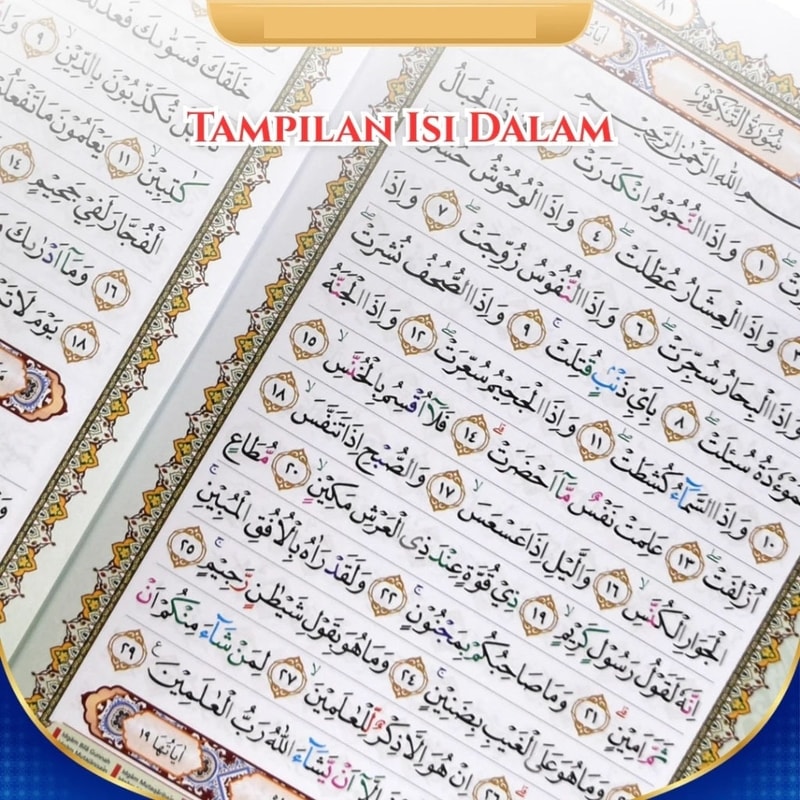 TAMPILAN ISI DALAM
٨١
سُوْرَةُ التَّكْوِيْرِ
اللّٰهِ الرَّحْمٰنِ الرَّحِيْمِ
١ وَاِذَا النُّجُوْمُ انْكَدَرَتْ الْجِبَالُ
وَاِذَا الْعِشَارُ عُطِّلَتْ ٤ وَاِذَا الْوُحُوْشُ
وَاِذَا الْبِحَارُ سُجِّرَتْ ٦ وَاِذَا النُّفُوْسُ زُوِّجَتْ ٧ وَاِذَا
سُىِٕلَتْ ٨ بِاَيِّ ذَنْۢبٍ قُتِلَتْ ٩ وَاِذَا الصُّحُفُ نُشِرَتْ
١٠ وَاِذَا السَّمَاۤءُ كُشِطَتْ ١١ وَاِذَا الْجَحِيْمُ سُعِّرَتْ ١٢ وَاِذَا الْجَنَّةُ
اُزْلِفَتْ ١٣ عَلِمَتْ نَفْسٌ مَّآ اَحْضَرَتْ ١٤ فَلَآ اُقْسِمُ بِالْخُنَّسِ ١٥
الْجَوَارِ الْكُنَّسِ ١٦ وَالَّيْلِ اِذَا عَسْعَسَ ١٧ وَالصُّبْحِ اِذَا تَنَفَّسَ ١٨
اِنَّهٗ لَقَوْلُ رَسُوْلٍ كَرِيْمٍ ١٩ ذِيْ قُوَّةٍ عِنْدَ ذِى الْعَرْشِ مَكِيْنٍ ٢٠ مُّطَاعٍ
ثَمَّ اَمِيْنٍ ٢١ وَمَا صَاحِبُكُمْ بِمَجْنُوْنٍ ٢٢ وَلَقَدْ رَاٰهُ بِالْاُفُقِ الْمُبِيْنِ
وَمَا هُوَ عَلَى الْغَيْبِ بِضَنِيْنٍ ٢٤ وَمَا هُوَ بِقَوْلِ شَيْطٰنٍ رَّجِيْمٍ ٢٥
٢٦ اِنْ هُوَ اِلَّا ذِكْرٌ لِّلْعٰلَمِيْنَ ٢٧ لِمَنْ شَاۤءَ مِنْكُمْ اَنْ
اِلَّآ اَنْ يَّشَاۤءَ اللّٰهُ رَبُّ الْعٰلَمِيْنَ ٢٩
اٰيَاتُهَا ١٩
خَلَقَكَ فَسَوّٰىكَ
تُكَذِّبُوْنَ بِالدِّيْنِ ٩
كَاتِبِيْنَ ١١ يَعْلَمُوْنَ مَا تَفْعَلُوْنَ
الْفُجَّارَ لَفِيْ جَحِيْمٍ ١٤
١٦ وَمَآ اَدْرٰىكَ
١٨ يَوْمَ لَا
Idgām Bilā Gunnah